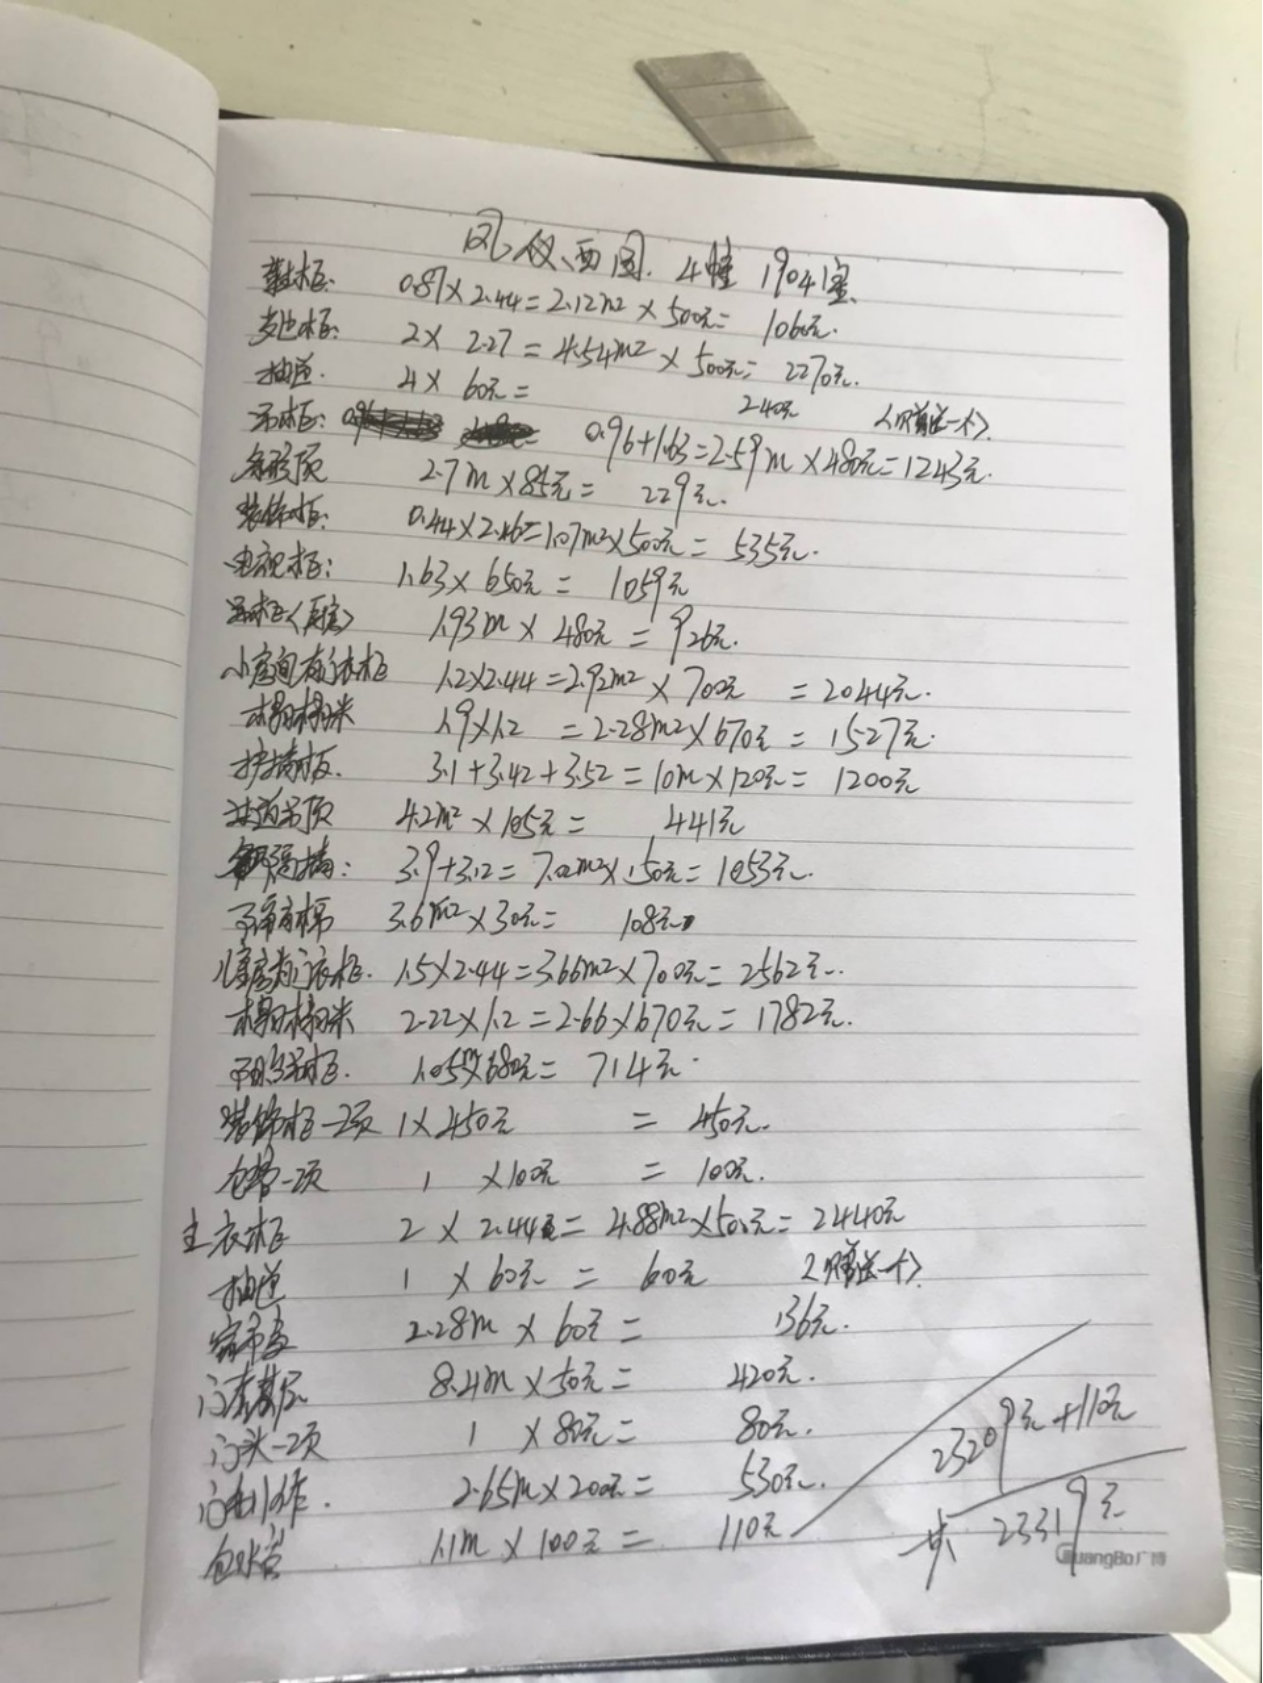 风仪西园. 4幢 1904室.
鞋柜: 0.87×2.44=2.12m²×500元= 1060元.
2× 2.27 = 4.54m²×500元= 2270元.
抽道. 4× 60元= 240元 (赠送一个).
吊柜: 0.96+1.63=2.59m×480元=1243元.
顶 2.7m×85元= 229元.
装饰柜: 0.44×2.46=1.07m²×500元= 535元.
电视柜: 1.63×650元= 1059元
吊柜 1.93m × 480元 = 926元.
小房间有门衣柜 1.2×2.44=2.92m²×700元 =2044元.
榻榻米 1.9×1.2 =2.28m²×670元= 1527元.
护墙板. 3.1+3.42+3.52=10m×120元= 1200元
过道吊顶 4.2m²×105元= 441元
隔墙: 3.9+3.12= 7.02m²×150元= 1053元.
3.6m²×30元= 108元
儿童房有门衣柜. 1.5×2.44=3.66m²×700元=2562元.
榻榻米 2.22×1.2=2.66×670元= 1782元.
吊柜. 1.05m×680元= 714元
装饰柜一项 1×450元 = 450元.
一项 1 ×100元 = 100元.
主衣柜 2 × 2.44= 4.88m²×500元= 2440元
抽道 1 ×60元 = 60元 (赠送一个).
窗帘 2.28m × 60元= 136元.
门套基层 8.4m×50元= 420元.
门头一项 1 ×80元= 80元.
2.65m×200元= 530元.
包水管 1.1m×100元= 110元
23209元+110元
共 23319元
GuangBo广博